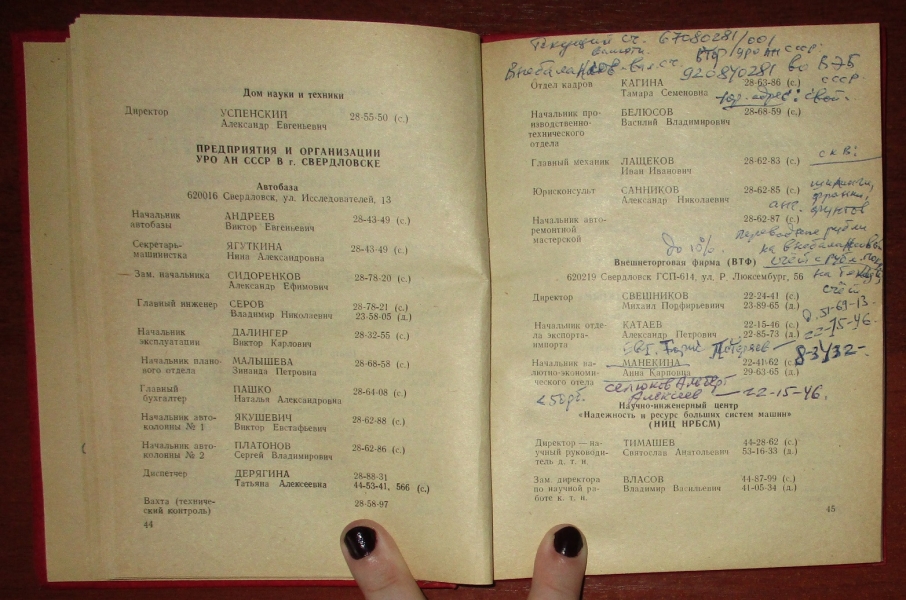 Дом науки и техники
Директор УСПЕНСКИЙ 28-55-50 (с.)
Александр Евгеньевич
ПРЕДПРИЯТИЯ И ОРГАНИЗАЦИИ
УРО АН СССР В г. СВЕРДЛОВСКЕ
Автобаза
620016 Свердловск, ул. Исследователей, 13
Начальник АНДРЕЕВ 28-43-49 (с.)
автобазы Виктор Евгеньевич
Секретарь- ЯГУТКИНА 28-43-49 (с.)
машинистка Нина Александровна
— Зам. начальника СИДОРЕНКОВ 28-78-20 (с.)
Александр Ефимович
Главный инженер СЕРОВ 28-78-21 (с.)
Владимир Николаевич 23-58-05 (д.)
Начальник ДАЛИНГЕР 28-32-55 (с.)
эксплуатации Виктор Карлович
Начальник плано- МАЛЫШЕВА 28-68-58 (с.)
вого отдела Зинаида Петровна
Главный ПАШКО 28-64-08 (с.)
бухгалтер Наталья Александровна
Начальник авто- ЯКУШЕВИЧ 28-62-88 (с.)
колонны № 1 Виктор Евстафьевич
Начальник авто- ПЛАТОНОВ 28-62-86 (с.)
колонны № 2 Сергей Владимирович
Диспетчер ДЕРЯГИНА 28-88-31
Татьяна Алексеевна 44-53-41, 566 (с.)
Вахта (техниче- 28-58-97
ский контроль)
44
Текущий сч. 67080281/001
ВТФ УроАН СССР:
сч. 920840281 во ВЭБ
СССР.
Отдел кадров КАГИНА 28-63-86 (с.)
Тамара Семеновна
Юр. адрес: свой.
Начальник про- БЕЛЮСОВ 28-68-59 (с.)
изводственно- Василий Владимирович
технического
отдела
СКВ:
Главный механик ЛАЩЕКОВ 28-62-83 (с.)
Иван Иванович
Юрисконсульт САННИКОВ 28-62-85 (с.)
Александр Николаевич
шиллинги,
франки,
анг. фунтов
Начальник авто- 28-62-87 (с.)
ремонтной
мастерской
переводные рубли
до 10%.
Внешнеторговая фирма (ВТФ)
620219 Свердловск ГСП-614, ул. Р. Люксембург, 56
счёт
Директор СВЕШНИКОВ 22-24-41 (с.)
Михаил Порфирьевич 23-89-65 (д.)
51-69-13.
Начальник отде- КАТАЕВ 22-15-46 (с.)
ла экспорта- Александр Петрович 22-85-73 (д.)
импорта
22-15-46.
Начальник ва- МАНЕКИНА 22-41-62 (с.)
лютно-экономи- Анна Карповна 29-63-65 (д.)
ческого отела
Селюков Альберт
Алексеев — 22-15-46.
Научно-инженерный центр
«Надежность и ресурс больших систем машин»
(НИЦ НРБСМ)
Директор — на- ТИМАШЕВ 44-28-62 (с.)
учный руководи- Святослав Анатольевич 53-16-33 (д.)
тель д. т. н.
Зам. директора ВЛАСОВ 44-87-99 (с.)
по научной ра- Владимир Васильевич 41-05-34 (д.)
боте к. т. н.
45